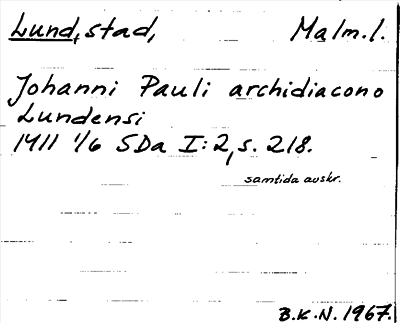 Lund, stad, Malm.l.
Johanni Pauli archidiacono
Lundensi
1411 1/6 SDa I:2, s. 218.
samtida avskr.
B.K.N. 1967.